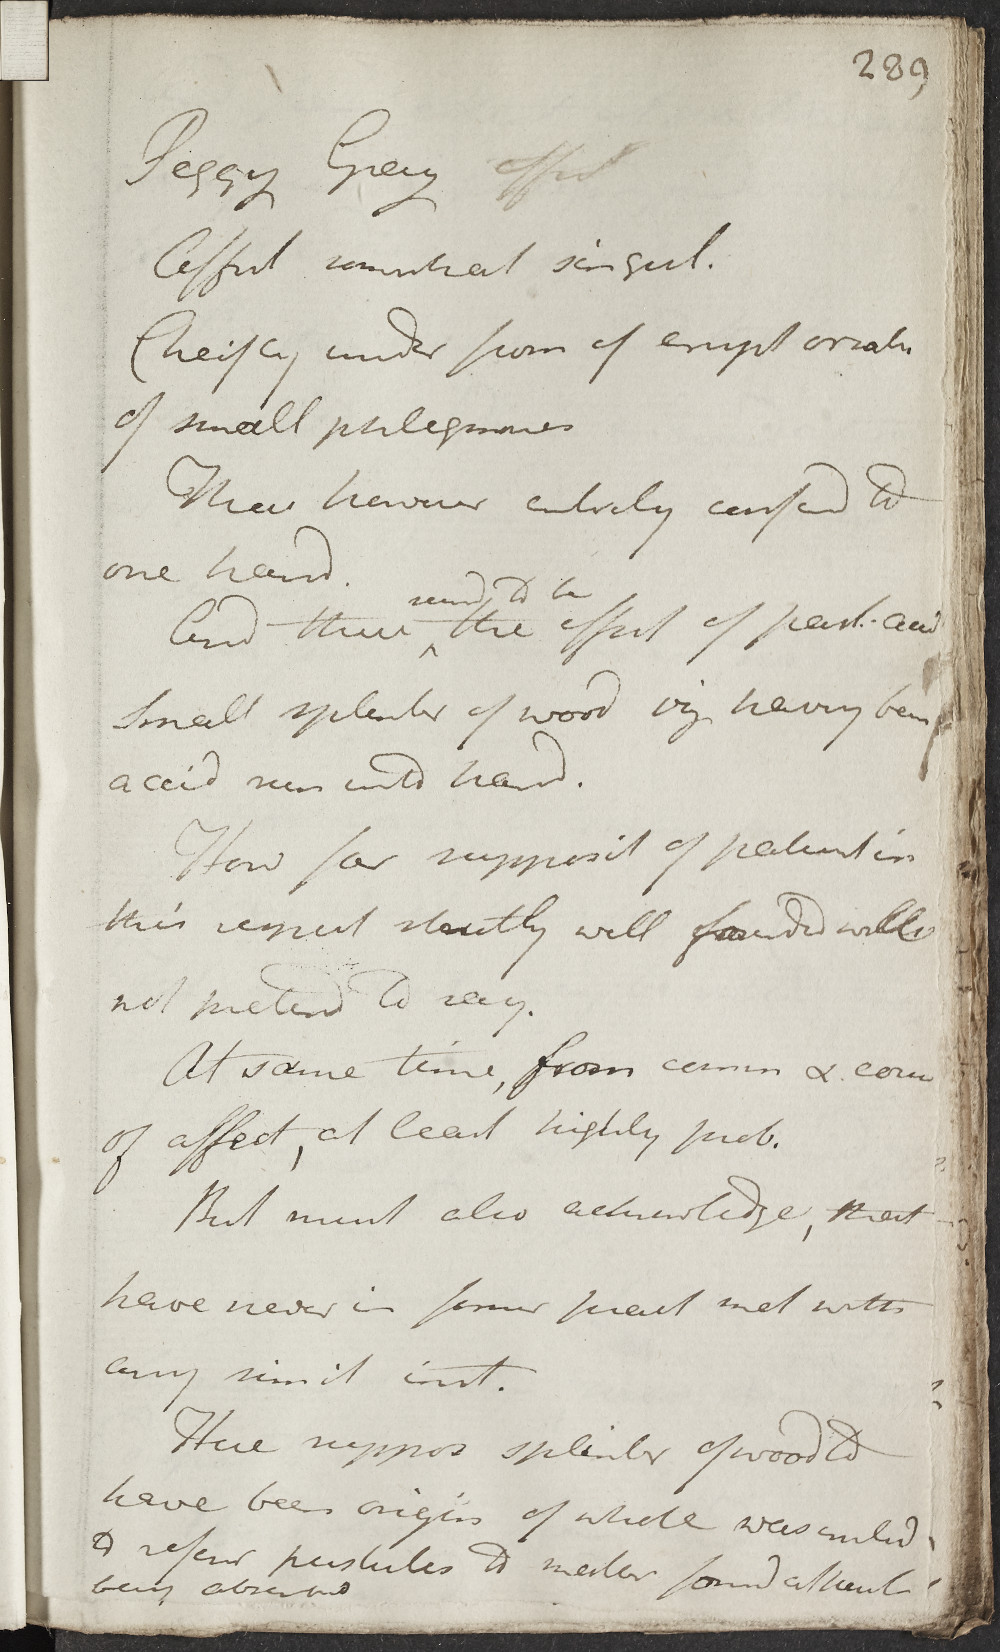 289
Peggy Gray
Affect somewhat singul.
Cheifly under form of erupt or rath
of small phlegmones
These however entirely confind to
one hand.
seemd to be
And these the effect of part. accid
Small splinter of wood viz having been
accid run into hand.
How far supposit of patient in
this respect strictly well founded will
not pretend to say.
At same time, from comm & cour
of affect, at least highly prob.
But must also acknowledge, that
have never in former pract met with
any simil inst.
Here suppos splinter of wood to
have been origin of whole was
to refer pustules to matter
being absorbd